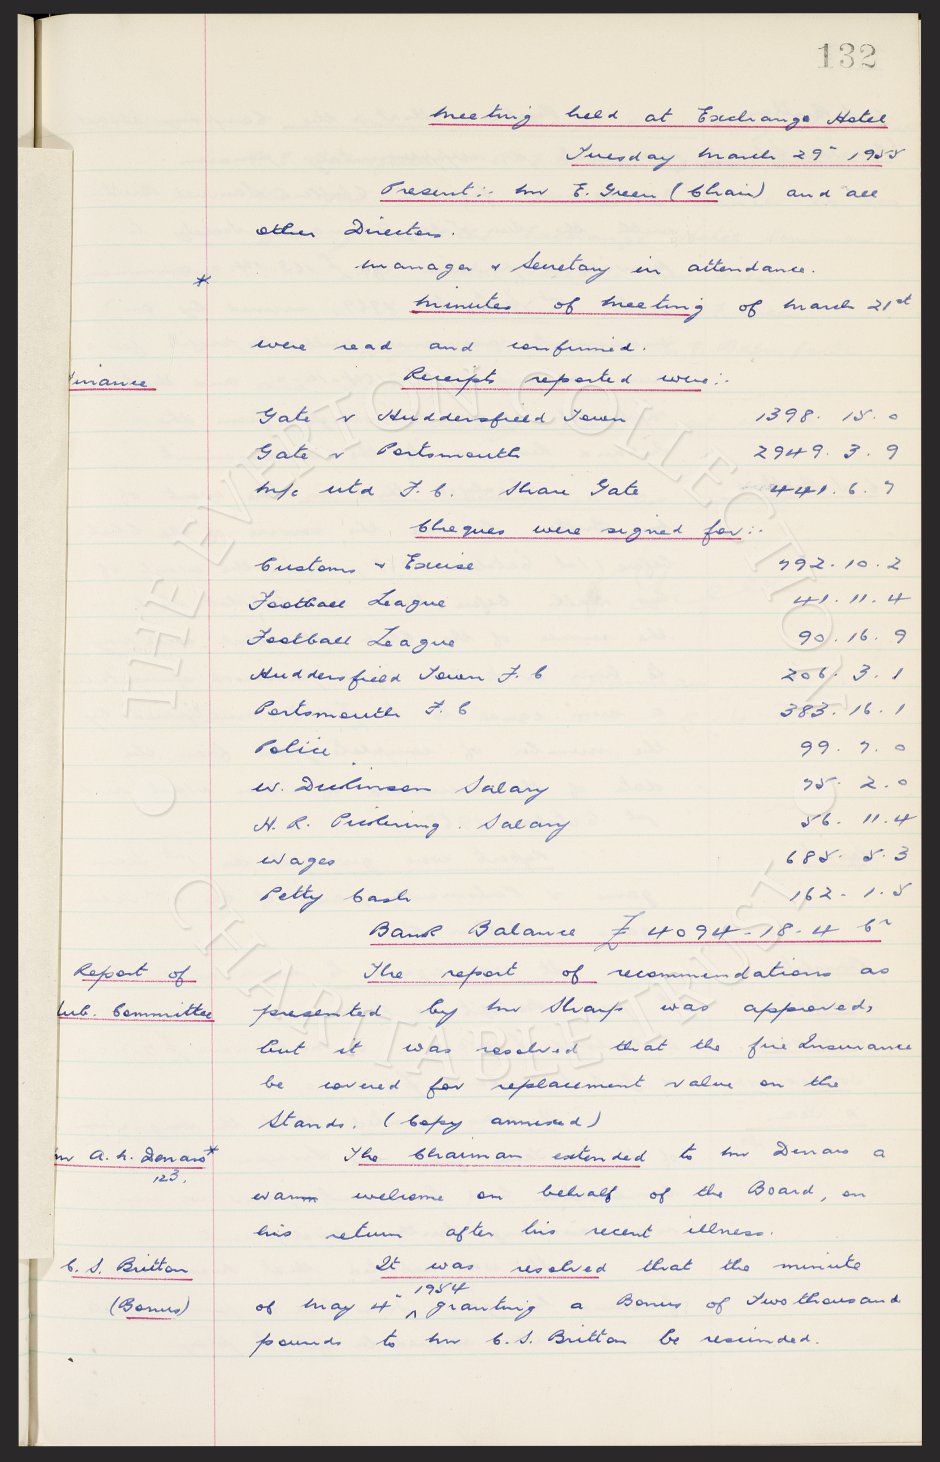 132
Meeting held at Exchange Hotel
Tuesday March 29" 1955
Present:- Mr E. Green (Chair) and all
other Directors.
Manager & Secretary in attendance.
*
Minutes of Meeting of March 21st
were read and confirmed.
Finance
Receipts reported were:-
Gate v Huddersfield Town 1398. 15. 0
Gate v Portsmouth 2949. 3. 9
M/c Utd F.C. Share Gate 441. 6. 7
Cheques were signed for:-
Customs & Excise 792. 10. 2
Football League 41. 11. 4
Football League 90. 16. 9
Huddersfield Town F.C 206. 3. 1
Portsmouth F.C 383. 16. 1
Police 99. 7. 0
W. Dickinson Salary 75. 2. 0
H. R. Pickering. Salary 56. 11. 4
Wages 685. 5. 3
Petty Cash 162. 1. 5
Bank Balance £4094-18-4 Cr
Report of
Sub. Committee
The report of recommendations as
presented by Mr Sharp was approved,
but it was resolved that the fire Insurance
be covered for replacement value on the
Stands. (Copy annexed)
Mr A. H. Denaro *
123.
The Chairman extended to Mr Denaro a
warm welcome on behalf of the Board, on
his return after his recent illness.
C. S. Britton
(Bonus)
It was resolved that the minute
of May 4" 1954 granting a Bonus of Two thousand
pounds to Mr C. S. Britton be rescinded.
© THE EVERTON COLLECTION CHARITABLE TRUST